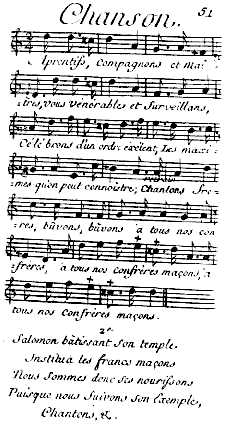 Chanson. 51
Aprentifs, Compagnons et Maî-
tres, Vous Vénérables et Surveillans,
Célébrons d'un ordre éxélent, Les maxi-
-mes qu'on peut connoistre; Chantons
-res, bûvons, bûvons à tous nos con
-fréres, à tous nos confréres maçons, à
tous nos Confréres maçons.
2e
Salomon bâtissant Son temple.
Institua les francs maçons
Nous Sommes donc Ses nourissons
Puisque nous Suivons Son Exemple,
Chantons, &.